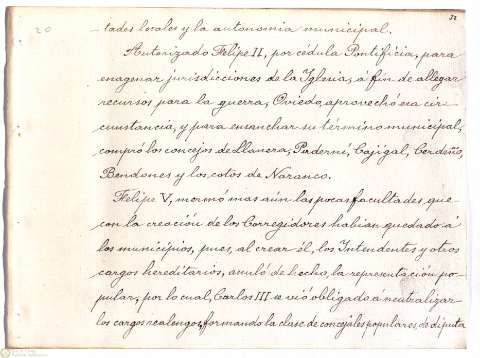 20
51
tades locales y la autonomia municipal.
Autorizado Felipe II, por cédula Pontificia, para
enagenar jurisdicciones de la Iglesia, á fin de allegar
recursos para la guerra, Oviedo, aprovechó esa cir-
cunstancia, y para ensanchar su término municipal,
compró los concejos de Llanera, Paderni, Cajigal, Cerdeño,
Bendones y los cotos de Naranco.
Felipe V, mermó mas aún las pocas facultades, que
con la creación de los Corregidores habian quedado á
los municipios, pues, al crear él, los Intendentes y otros
cargos hereditarios, anuló de hecho, la representación po-
pular, por lo cual, Carlos III se vió obligado á neutralizar
los cargos realengos, formando la clase de concejales populares, de diputa